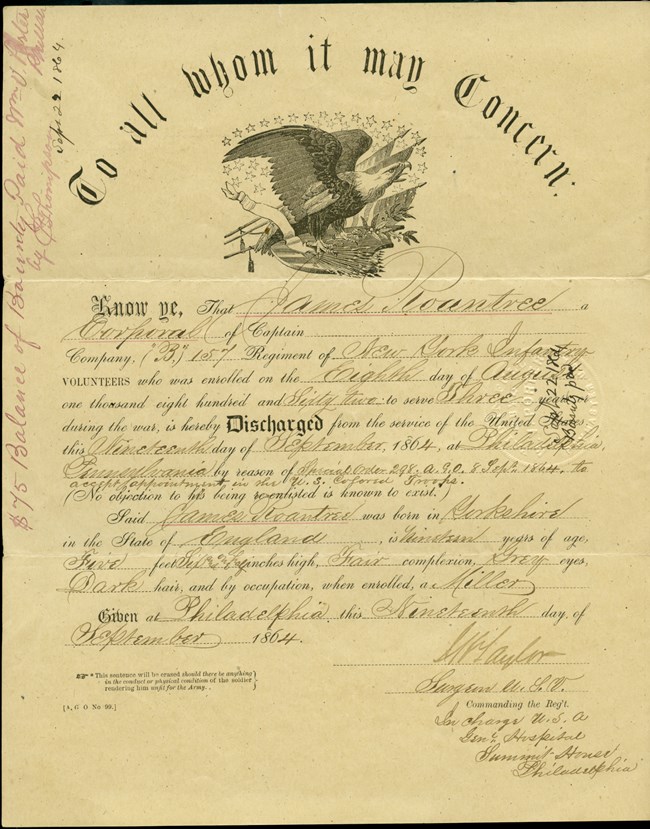 To all whom it may Concern:
Know ye, That James Rountree a
Corporal of Captain
Company, ("B,") 157 Regiment of New York Infantry
VOLUNTEERS who was enrolled on the Eighth day of August
one thousand eight hundred and Sixty two to serve Three years
during the war, is hereby Discharged from the service of the United States
this Nineteenth day of September, 1864, at Philadelphia,
Pennsylvania by reason of Special Order 298. A.G.O. 8 Sept. 1864. to
accept appointment in the U.S. Colored Troops.
(No objection to his being reenlisted is known to exist.)
Said James Rountree was born in Yorkshire
in the State of England, is Nineteen years of age,
Five feet Six inches high, Fair complexion, Grey eyes,
Dark hair, and by occupation, when enrolled, a Miller
Given at Philadelphia this Nineteenth day of
September 1864.
Taylor
☞ *This sentence will be erased should there be anything
in the conduct or physical condition of the soldier
rendering him unfit for the Army.
Surgeon U.S.V.
[A, G O No 99.]
Commanding the Reg't.
In charge U.S.A
Genl. Hospital
Summit House
Philadelphia
$75 Balance of Bounty Paid
by Thompson
Sept 22 1864
Sept 22 1864
Bounty paid